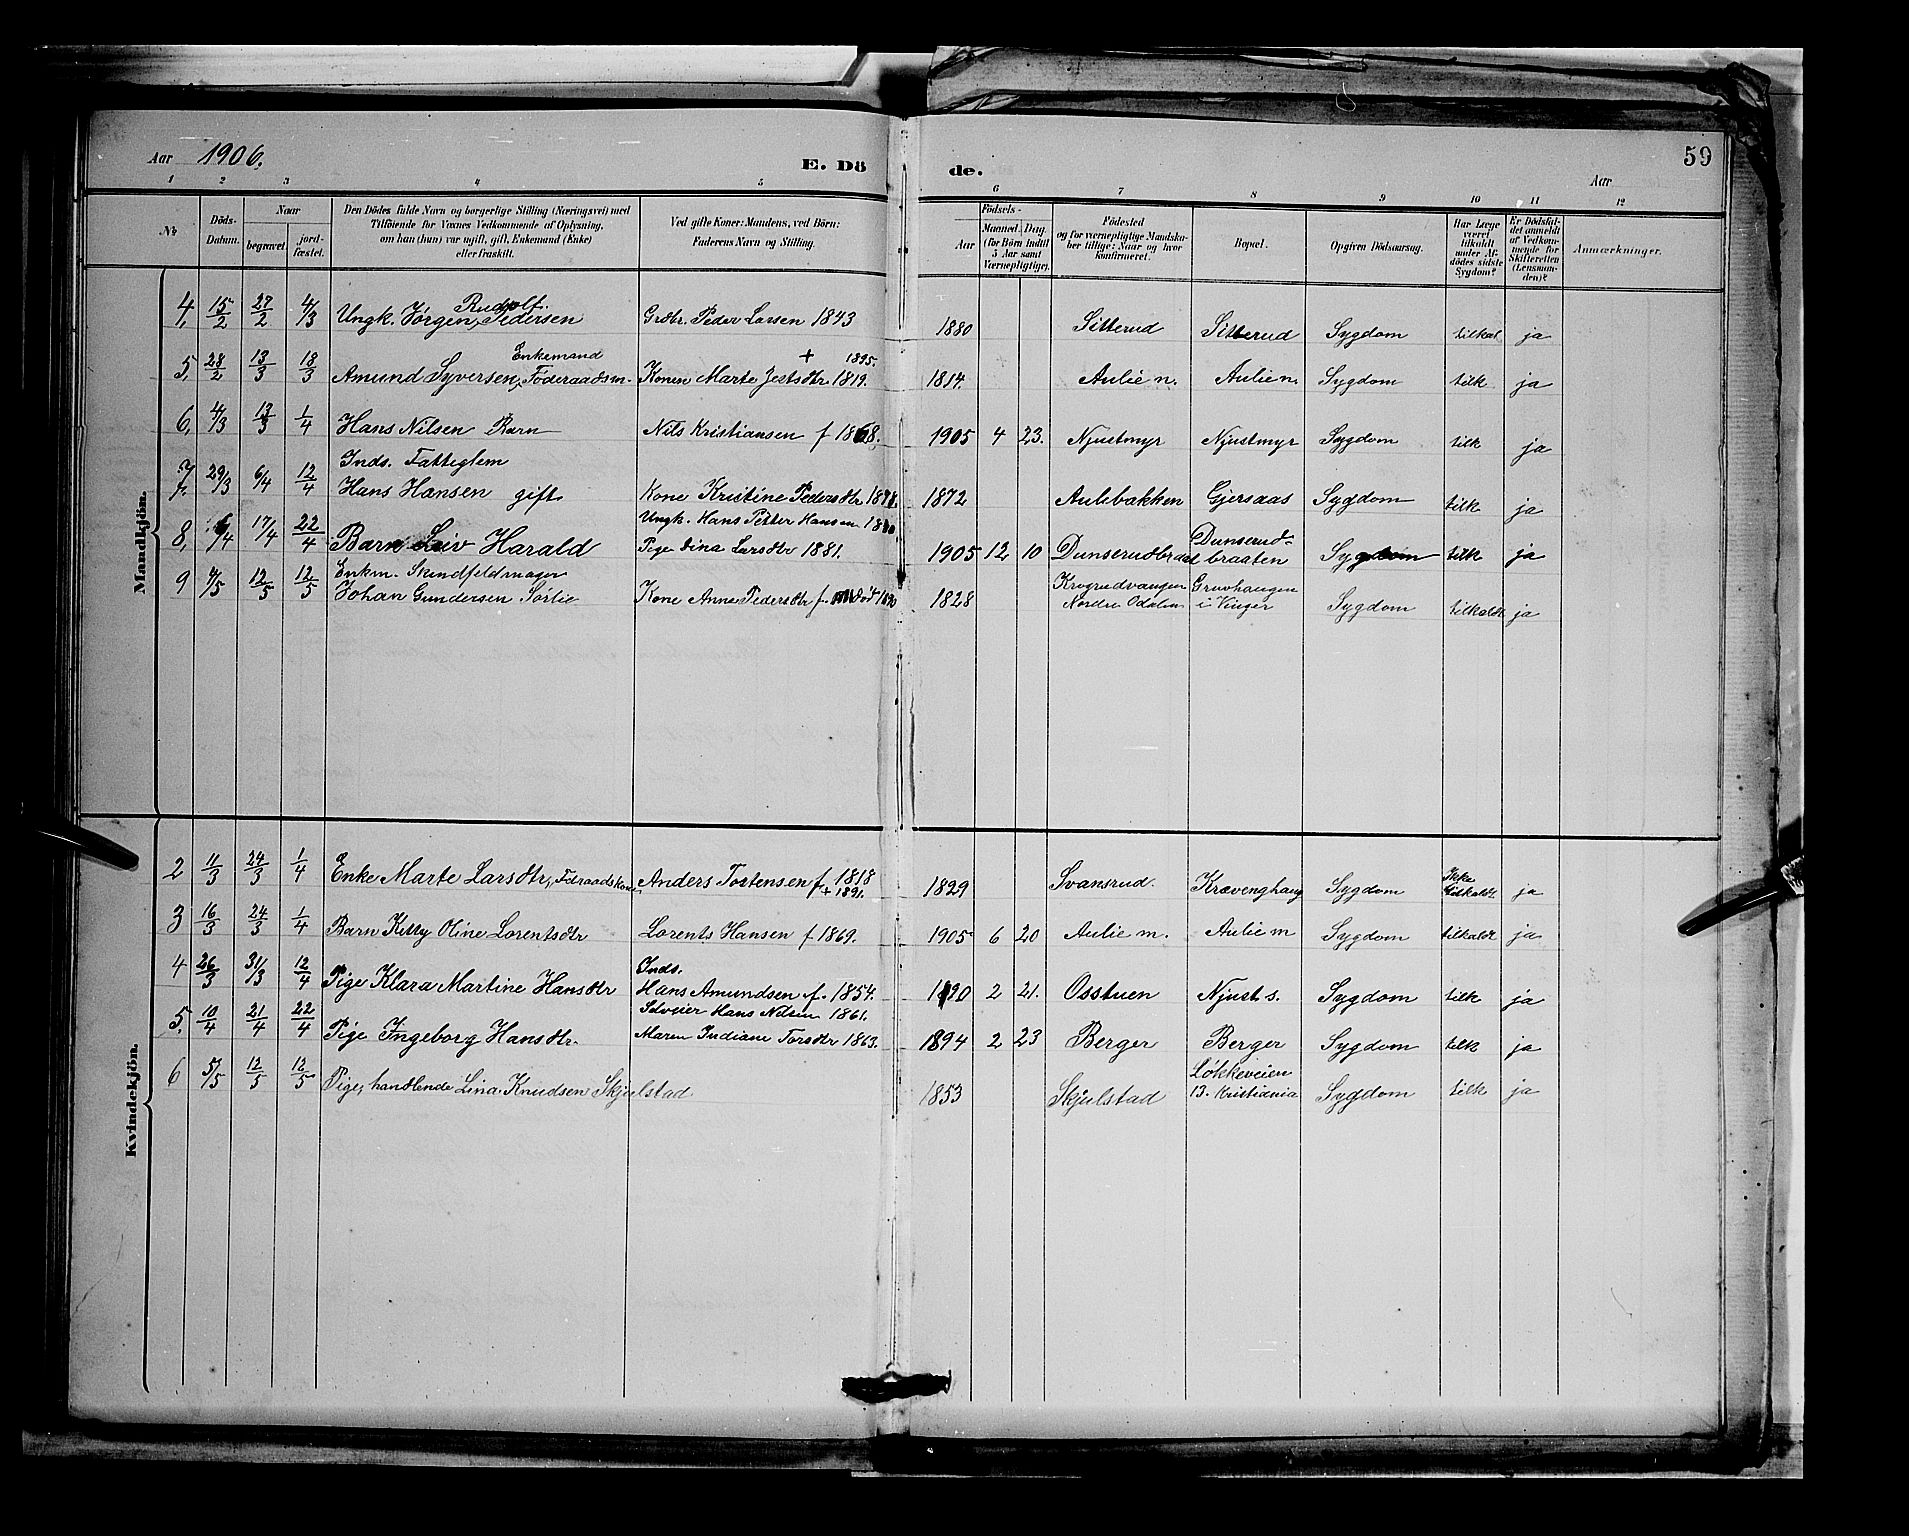 Aar 1906.
E. Dö
de.
59
Aar
1 2 3 4 5 6 7 8 9 10 11 12
No.
Döds-Datum.
Naar
begravet
jord-fæstet.
Den Dödes fulde Navn og borgerlige Stilling (Næringsvei) med
Tilföiende for Voxnes Vedkommende af Oplysning,
om han (hun) var ugift, gift, Enkemand (Enke)
eller fraskilt.
Ved gifte Koner: Mandens, ved Börn:
Faderens Navn og Stilling.
Födsels-
Aar
Maaned. Dag.
(for Börn indtil
5 Aar samt
Værnepligtige).
Födested
og for værnepligtige Mandska-
ber tillige: Naar og hvor
konfirmeret.
Bopæl.
Opgiven Dödsaarsag.
Har Læge
været
tilkaldt
under Af-
dödes sidste
Sygdom?
Er Dödsfal-
det anmeldt
af Vedkom-
mende for
Skifteretten
(Lensman-
den)?
Anmærkninger.
Mandkjön.
Rudolf
4, 15/2 27/2 4/3 Ungk. Jörgen Pedersen Grdbr. Peder Larsen 1843 1880 Sitterud Sitterud Sygdom tilkal ja
Enkemand + 1895.
5, 28/2 13/3 18/3 Amund Syversen, Föderaadsm. Konen Marte Jestsdtr 1819. 1814. Aulie n. Aulie n. Sygdom tilk ja
6, 4/3 13/3 1/4 Hans Nilsen Barn Nils Kristiansen f 1868. 1905 4 23. Njustmyr Njustmyr Sygdom tilk ja
Inds. Fattiglem
7. 29/3 6/4 12/4 Hans Hansen gift Kone Kristine Pedersdtr. 1872 Aulebakken Gjersaas Sygdom tilk ja
Ungk. Hans Petter Hansen Dunserud-
8, 17/4 22/4 Barn Leiv Harald Pige Dina Larsdtr 1881. 1905 12 10 Dunserudbraat braaten Sygdom tilk ja
Enkm. Skindfeldmager Krogrudvangen Gruvhaugen
9 4/5 12/5 12/5 Johan Gundersen Sörlie Kone Anne Pedersdtr f. död 1890 1828 Nordre Odalen i Vinger Sygdom tilkaldt ja
Kvindekjön.
Ikke
2 11/3 24/3 1/4 Enke Marte Larsdtr, Fdraadskone Anders Tostensen f 1818 1829 Svansrud. Krævenghaug Sygdom tilkaldt. ja
+ 1891.
3 16/3 24/3 1/4 Barn Kitty Oline Lorentsdtr Lorents Hansen f 1869. 1905 6 20 Aulie m. Aulie m Sygdom tilkaldt ja
Inds.
4 26/3 31/3 12/4 Pige Klara Martine Hansdtr Hans Amundsen f. 1854. 1890 2 21. Osstuen Njust s. Sygdom tilk ja
Selveier Hans Nilsen 1861.
5. 10/4 21/4 22/4 Pige Ingeborg Hansdtr. Maren Indiane Torsdtr 1863. 1894 2 23 Berger Berger Sygdom tilk ja
Lökkeveien
6 5/5 12/5 12/5 Pige, handlende Lina Knudsen Skjulstad 1853 Skjulstad 13. Kristiania Sygdom tilk ja